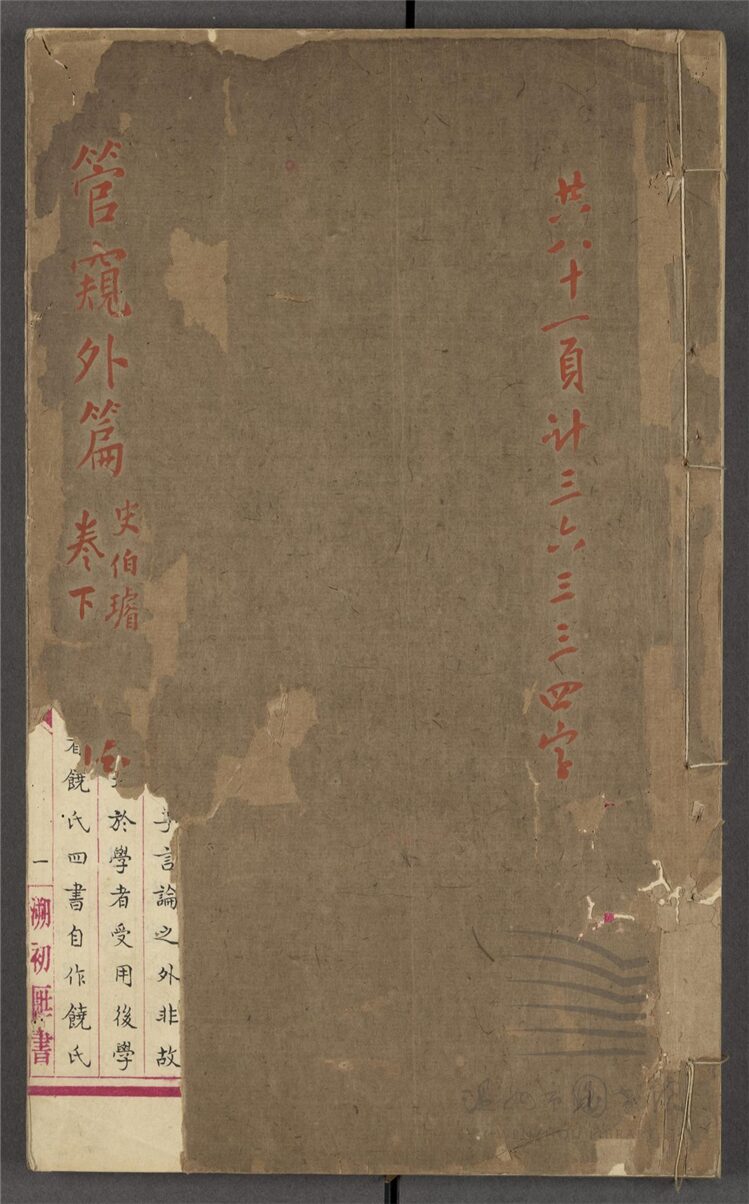 共八十一頁計三六三三四字
管窺外篇
史伯璿
卷下
言論之外非故
於學者受用後學
饒氏四書自作饒氏
一
溯初匪書